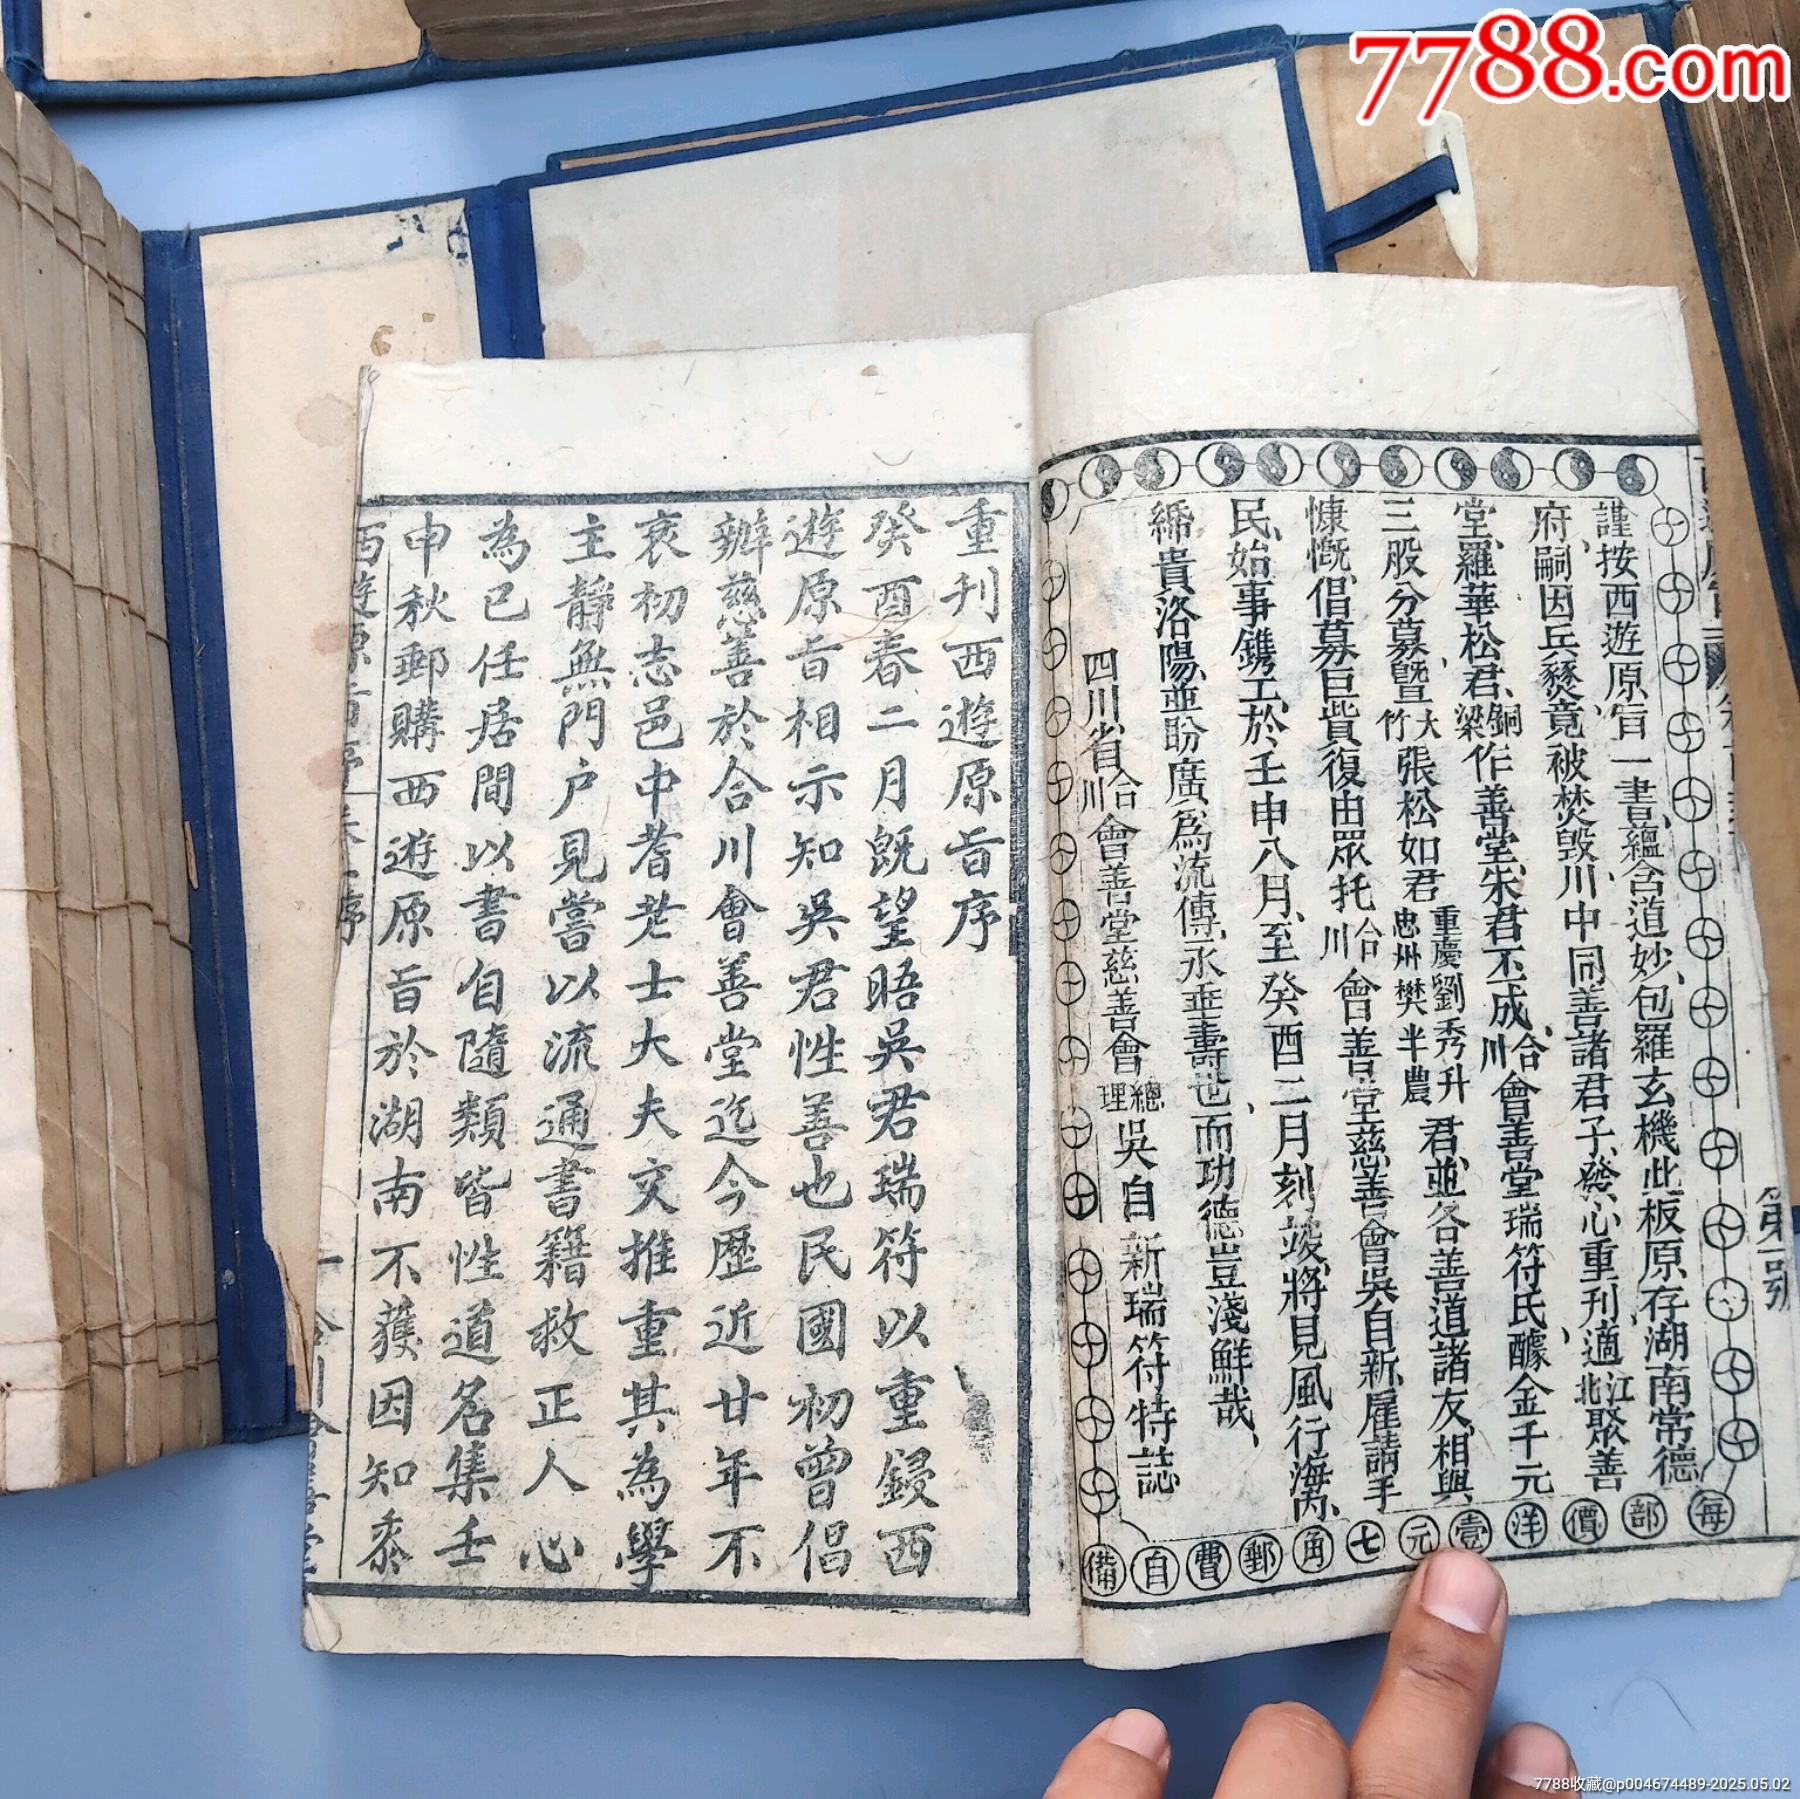 7788.com
謹按西遊原旨一書蘊含道妙包羅玄機此板原存湖南常德
府嗣因兵燹竟被焚毀川中同善諸君子發心重刊適江北聚善
堂羅華松君銅梁作善堂朱君丕成合川會善堂瑞符氏醵金千元
三股分募暨大竹張松如君重慶劉秀升忠州樊半農君並各善道諸友相與
慷慨倡募巨貲復由眾托合川會善堂慈善會吳自新雇請手
民始事鐫工於壬申八月至癸酉二月刻竣將見風行海內
紙貴洛陽並盼廣為流傳永垂壽世而功德豈淺鮮哉
四川省合川會善堂慈善會總理吳自新瑞符特誌
每部價洋壹元七角郵費自備
第一號
重刊西遊原旨序
癸酉春二月既望晤吳君瑞符以重鋟西
遊原旨相示知吳君性善也民國初曾倡
辦慈善於合川會善堂迄今歷近廿年不
衰初志邑中耆老士大夫交推重其為學
主靜無門户見嘗以流通書籍救正人心
為己任居間以書自隨類皆性道名集壬
申秋郵購西遊原旨於湖南不獲因知黍
西遊原旨序
7788收藏@p004674489-2025.05.02